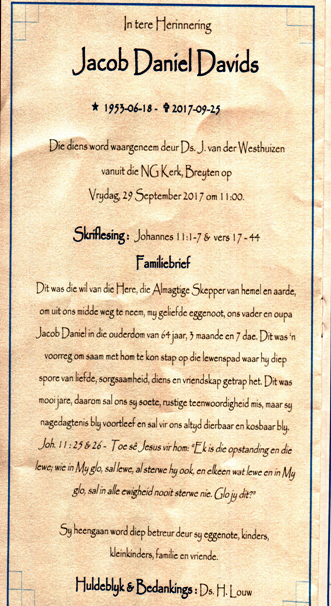 In tere Herinnering
Jacob Daniel Davids
★ 1953-06-18 - ✟ 2017-09-25
Die diens word waargeneem deur Ds. J. van der Westhuizen
vanuit die NG Kerk, Breyten op
Vrydag, 29 September 2017 om 11:00.
Skriflesing : Johannes 11:1-7 & vers 17 - 44
Familiebrief
Dit was die wil van die Here, die Almagtige Skepper van hemel en aarde,
om uit ons midde weg te neem, my geliefde eggenoot, ons vader en oupa
Jacob Daniel in die ouderdom van 64 jaar, 3 maande en 7 dae. Dit was 'n
voorreg om saam met hom te kon stap op die lewenspad waar hy diep
spore van liefde, sorgsaamheid, diens en vriendskap getrap het. Dit was
mooi jare, daarom sal ons sy soete, rustige teenwoordigheid mis, maar sy
nagedagtenis bly voortleef en sal vir ons altyd dierbaar en kosbaar bly.
Joh. 11 : 25 & 26 - Toe sê Jesus vir hom: "Ek is die opstanding en die
lewe; wie in My glo, sal lewe, al sterwe hy ook, en elkeen wat lewe en in My
glo, sal in alle ewigheid nooit sterwe nie. Glo jy dit?"
Sy heengaan word diep betreur deur sy eggenote, kinders,
kleinkinders, familie en vriende.
Huldeblyk & Bedankings : Ds. H. Louw